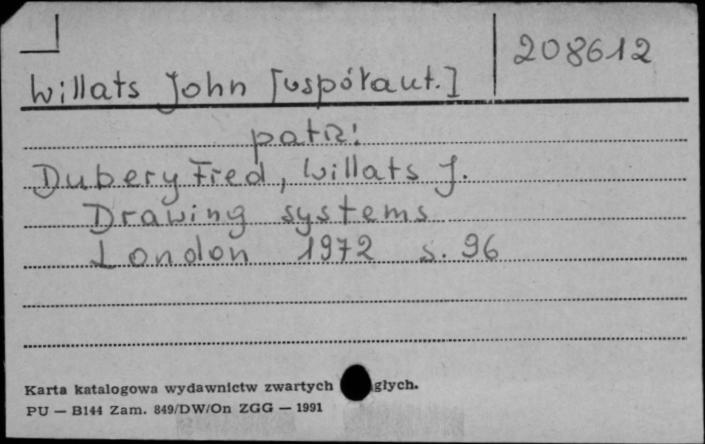 208612
Willats John [współaut.]
patrz:
Dubery Fred, Willats J.
Drawing systems
London 1972 s. 96
Karta katalogowa wydawnictw zwartych głych.
PU — B144 Zam. 849/DW/On ZGG — 1991